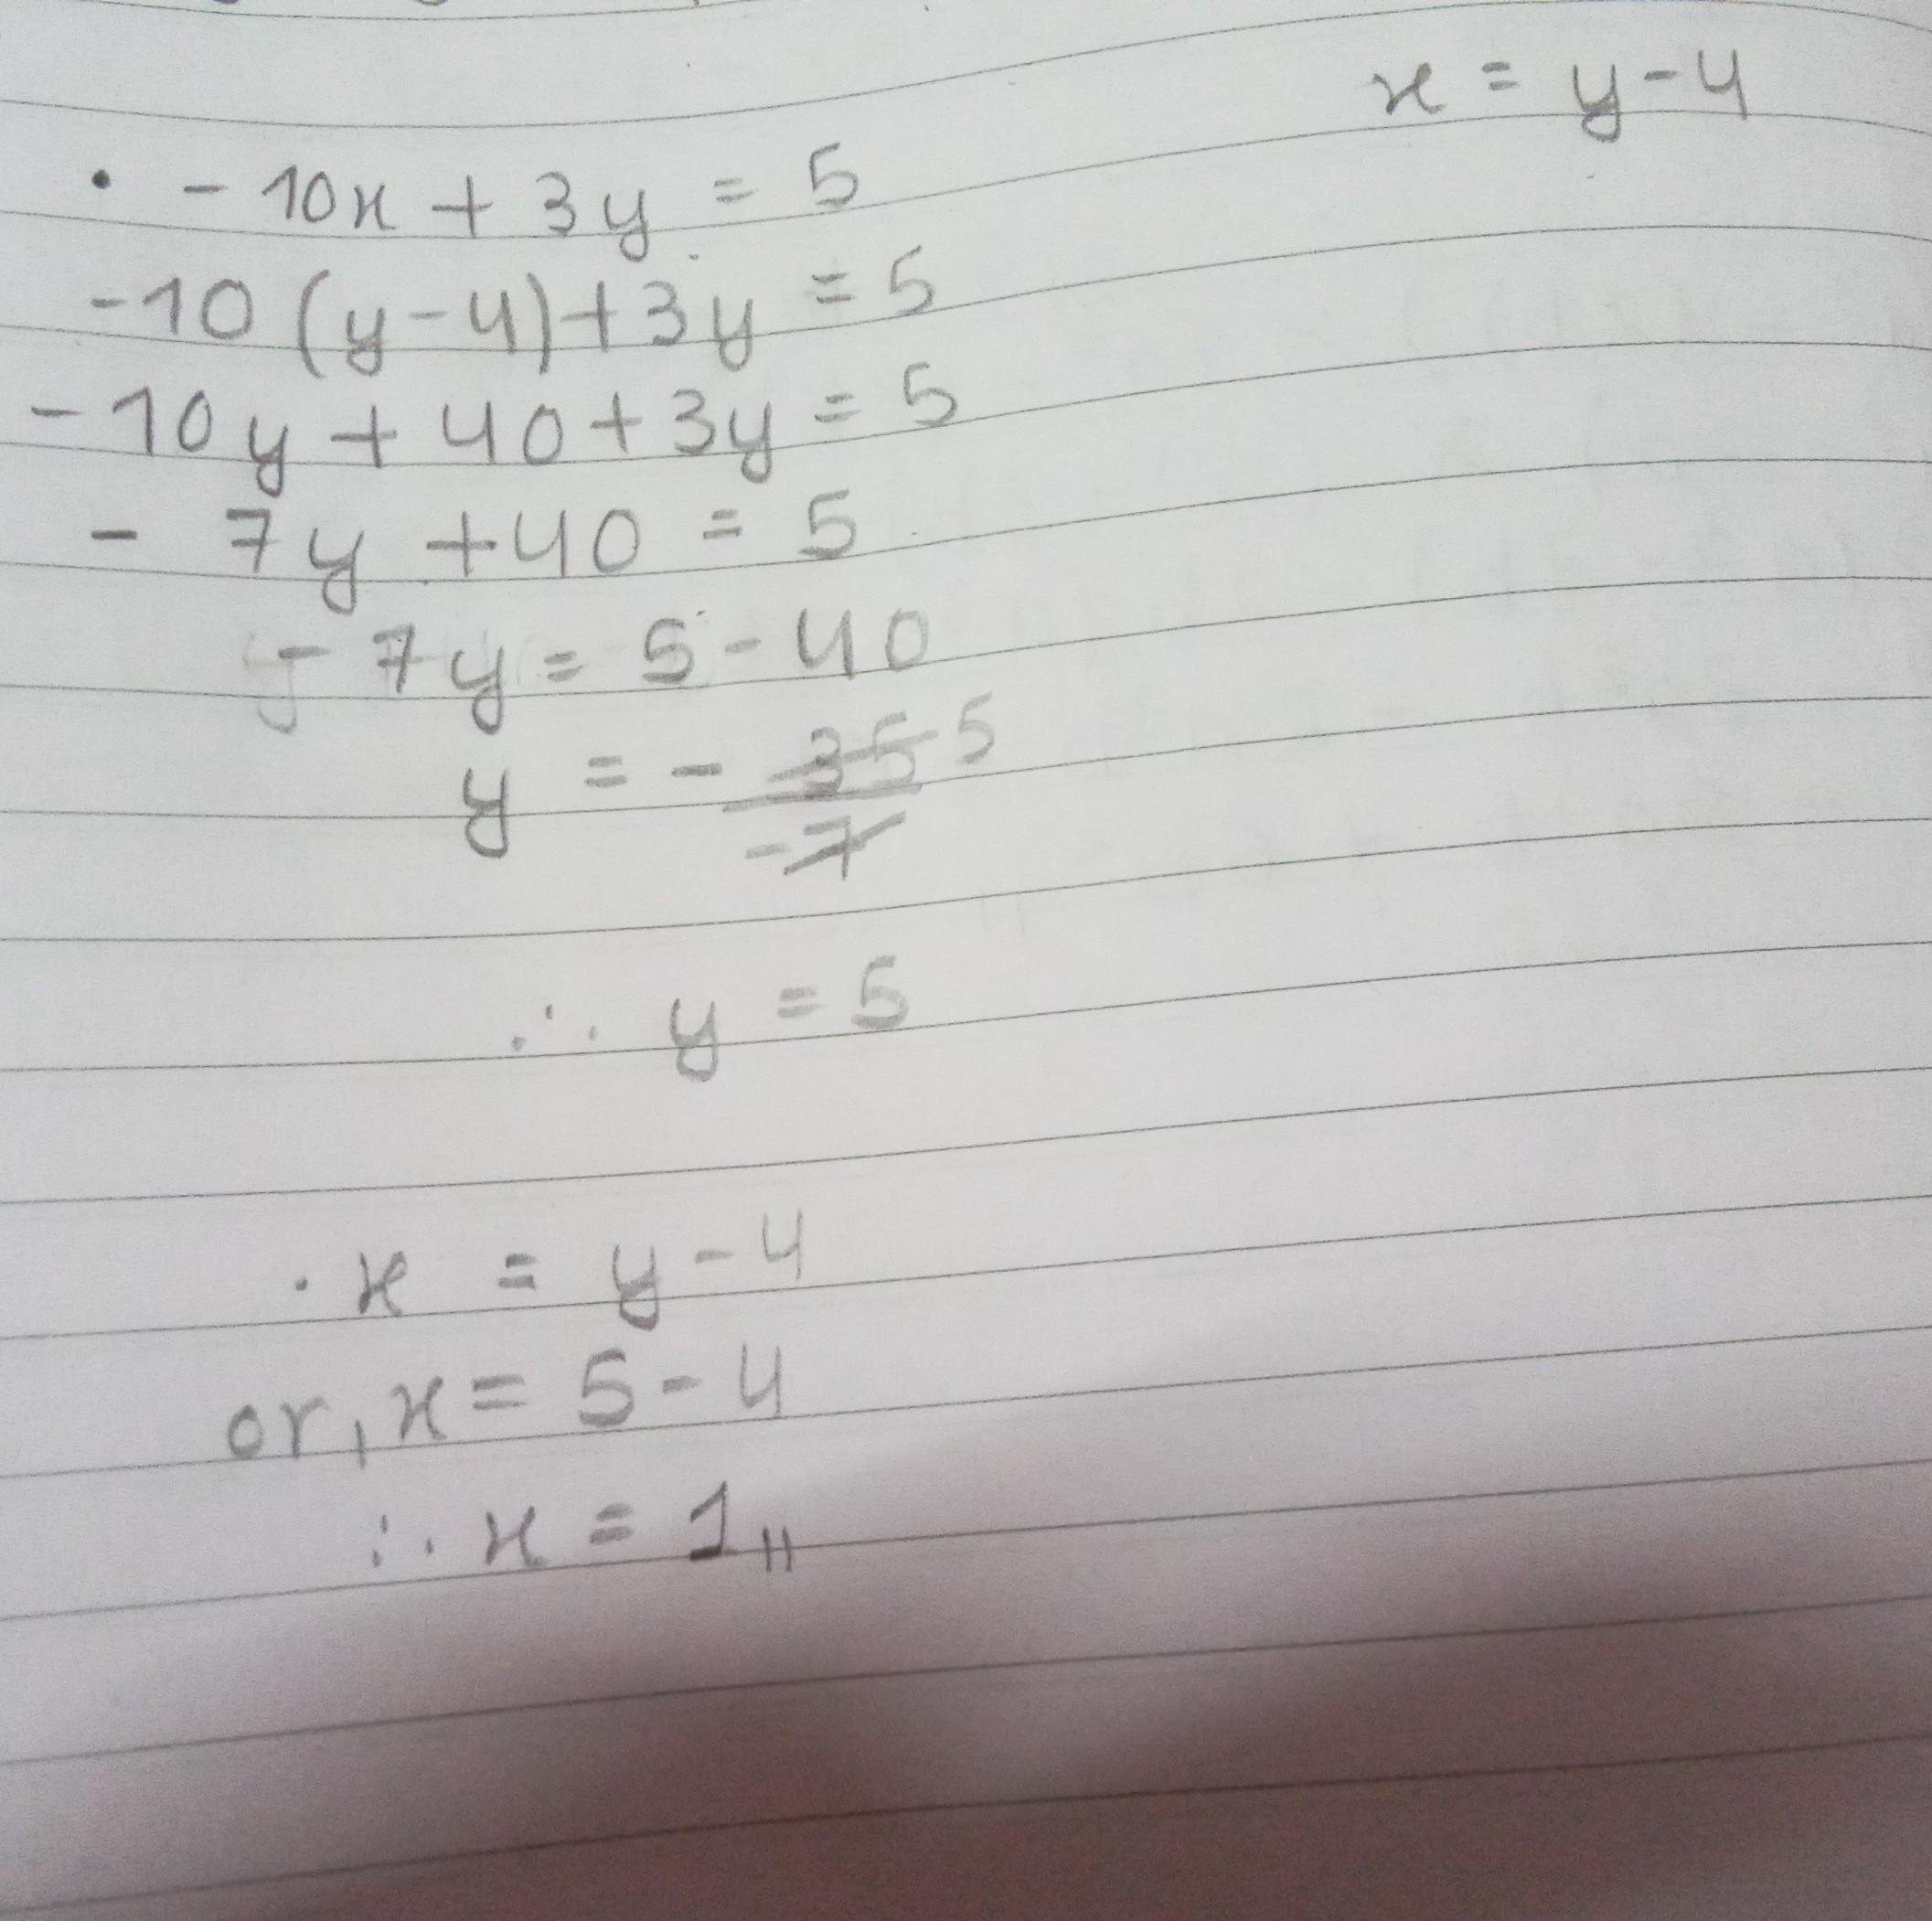 x = y - 4
• - 10x + 3y = 5
-10 (y - 4) + 3y = 5
- 10y + 40 + 3y = 5
- 7y + 40 = 5
- 7y = 5 - 40
y = - 35 5
-7
∴ y = 5
· x = y - 4
or, x = 5 - 4
∴ x = 1 ||